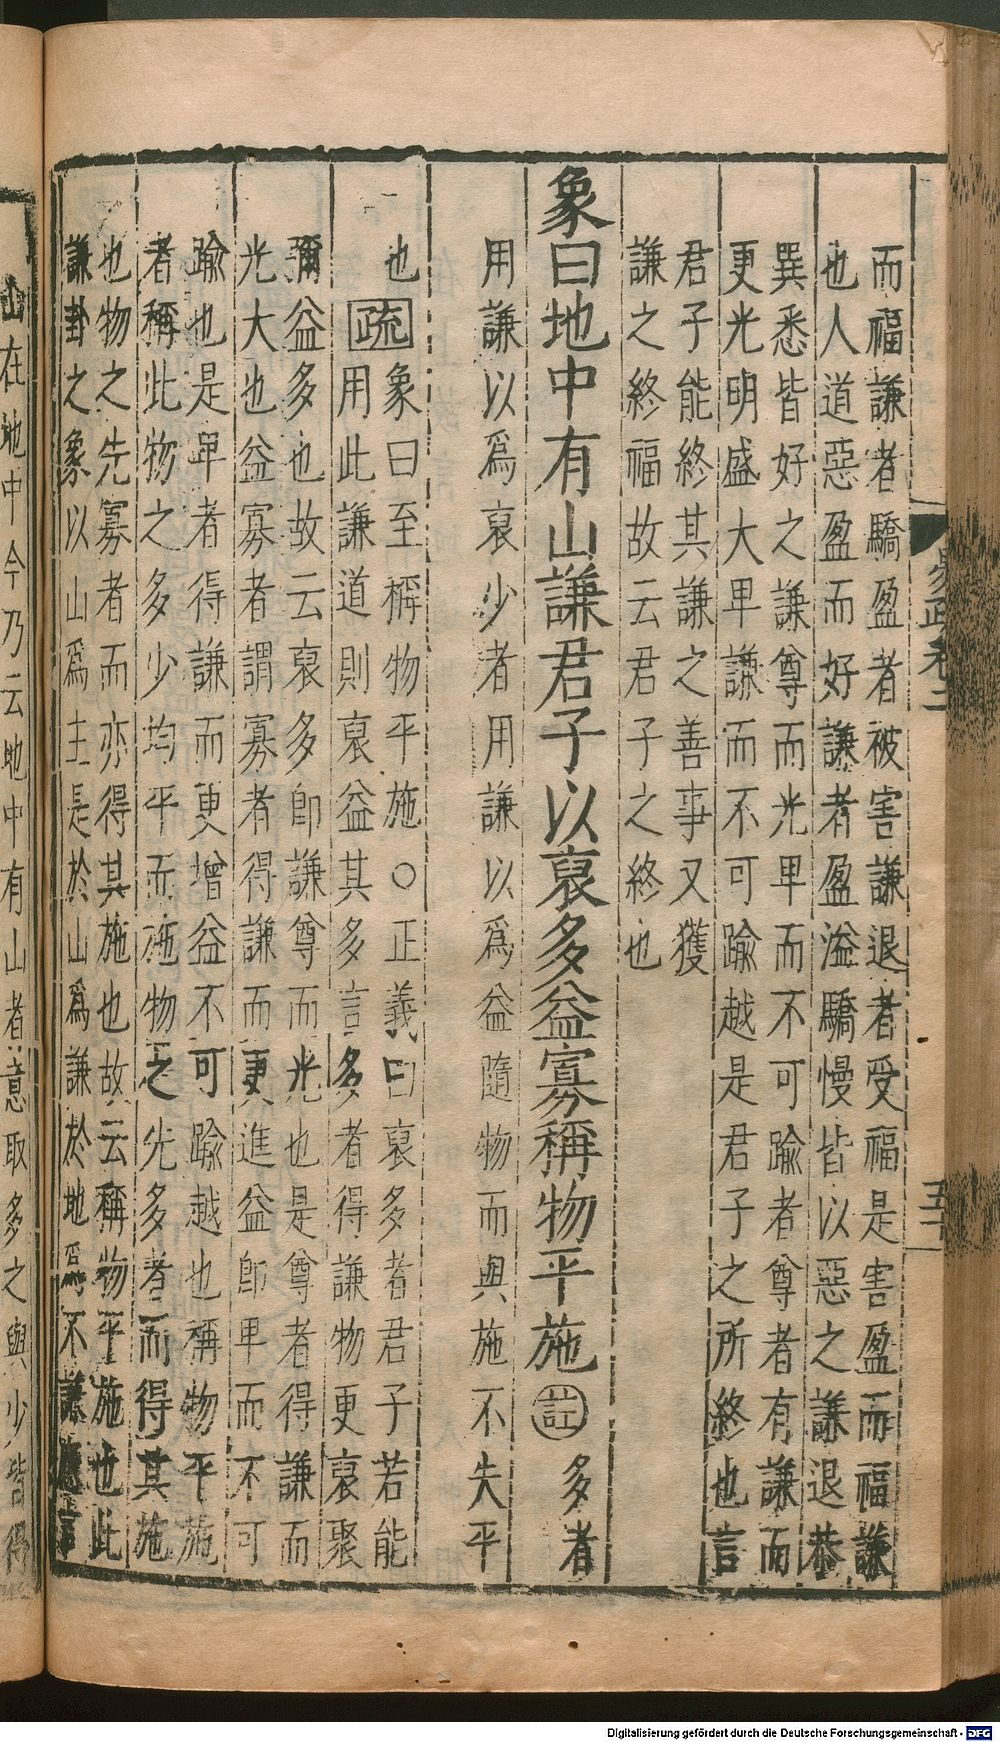 而福謙者驕盈者被害謙退者受福是害盈而福謙
也人道惡盈而好謙者盈溢驕慢皆以惡之謙退恭
巽悉皆好之謙尊而光卑而不可踰者尊者有謙而
更光明盛大卑謙而不可踰越是君子之所終也言
君子能終其謙之善事又獲
謙之終福故云君子之終也
象曰地中有山謙君子以裒多益寡稱物平施註多者
用謙以爲裒少者用謙以爲益隨物而與施不失平
也疏象曰至稱物平施〇正義曰裒多者君子若能
用此謙道則裒益其多言多者得謙物更裒聚
彌益多也故云裒多卽謙尊而光也是尊者得謙而
光大也益寡者謂寡者得謙而更進益卽卑而不可
踰也是卑者得謙而更增益不可踰越也稱物平施
者稱此物之多少均平而施物之先多者而得其施
也物之先寡者而亦得其施也故云稱物平施也此
謙卦之象以山爲主是於山爲謙於地爲不謙應言
山在地中今乃云地中有山者意取多之與少皆得
易疏卷二
五十
Digitalisierung gefördert durch die Deutsche Forschungsgemeinschaft - DFG